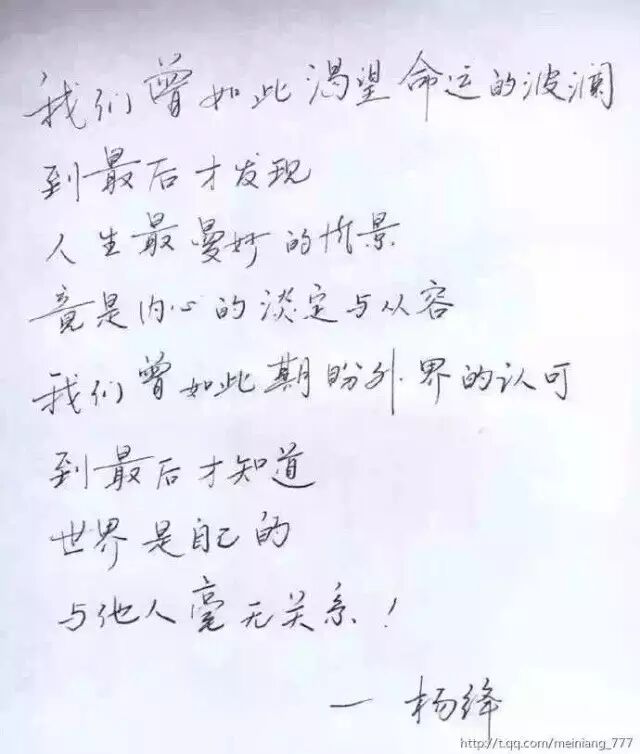 我们曾如此渴望命运的波澜
到最后才发现
人生最曼妙的情景
竟是内心的淡定与从容
我们曾如此期盼外界的认可
到最后才知道
世界是自己的
与他人毫无关系!
一杨绛
http://t.qq.com/meiniang_777